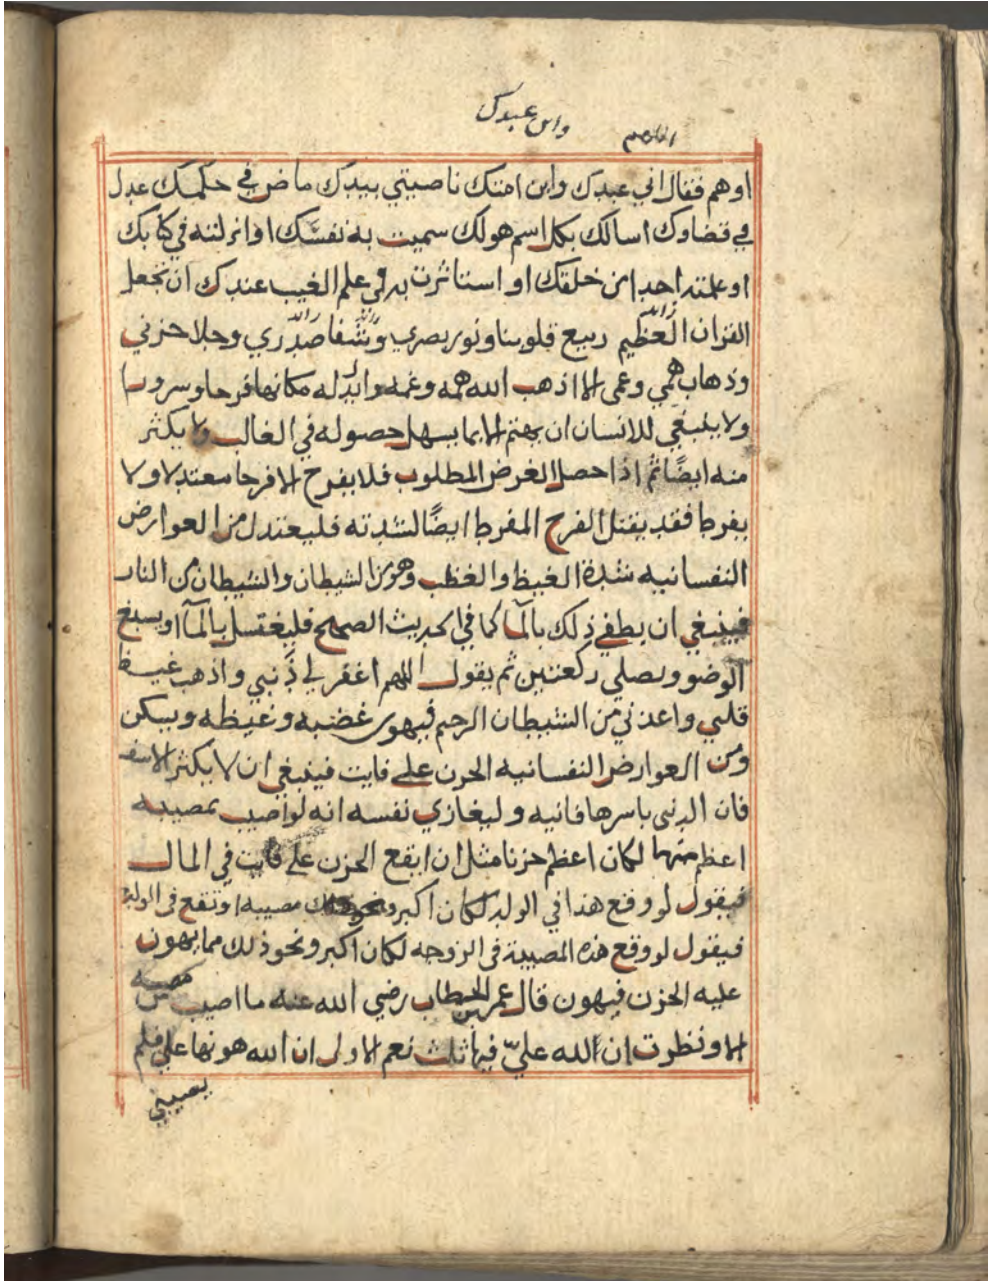 وابن عبدك
اللهم
او هم فقال اني عبدك وابن امتك ناصيتي بيدك ماض في حكمك عدل
في قضاوك اسالك بكل اسم هو لك سميت به نفسك او انزلته في كتابك
او علمته احدا من خلقك او استاثرت به في علم الغيب عندك ان تجعل
زايد
القران العظيم ربيع قلوبنا ونور بصري وشفا صدري وجلا حزني
وذهاب همي وغمى الا اذهب الله همه وغمه وابدله مكانها فرحا وسرورا
ولا ينبغي للانسان ان يهتم الا بما يسهل حصوله في الغالب ولا يكثر
منه ايضًا ثم اذا حصل الغرض المطلوب فلا يفرح الا فرحا معتدلا ولا
يفرط فقد يقتل الفرح المفرط ايضًا لشدته فليعتدل من العوارض
النفسانيه شدة الغيظ والغظب وهو من الشيطان والشيطان من النار
فينبغي ان يطفي ذلك بالمآ كما في الحديث الصحيح فليغتسل بالمآ او يسبغ
الوضو ويصلي ركعتين ثم يقول اللهم اغفر لي ذنبي واذهب غيظ
قلبي واعذني من الشيطان الرجيم فيهوى غضبه وغيظه ويسكن
ومن العوارض النفسانيه الحزن على فايت فينبغي ان لا يكثر الاسف
فان الدنى باسرها فانيه وليغازي نفسه انه لو اصيب بمصيبه
اعظم منها لكان اعظم حزنا مثل ان ايقع الحزن على فايت في المال
فيقول لو وقع هذا في الولد لكان اكبر مصيبه او تقع فى الولد
فيقول لو وقع هذه المصيبة فى الزوجه لكان اكبر ونحو ذلك مما يهون
عليه الحزن فيهون قال عمر بن الخطاب رضي الله عنه ما اصيب من مصيبه
الا ونظرت ان الله عليّ فيها ثلث نعم الاولى ان الله هونها علي فلم
يصيبني